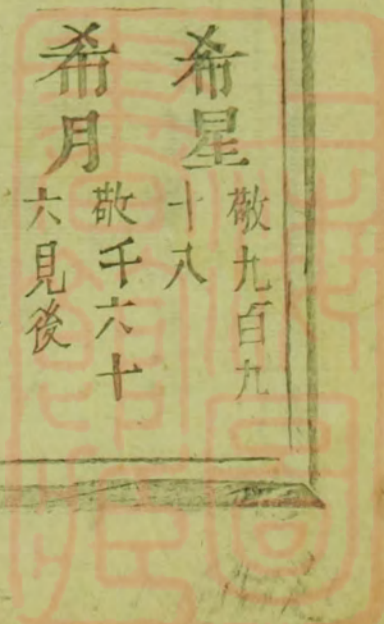 希星 敬九百九
十八
希月 敬千六十
六見後